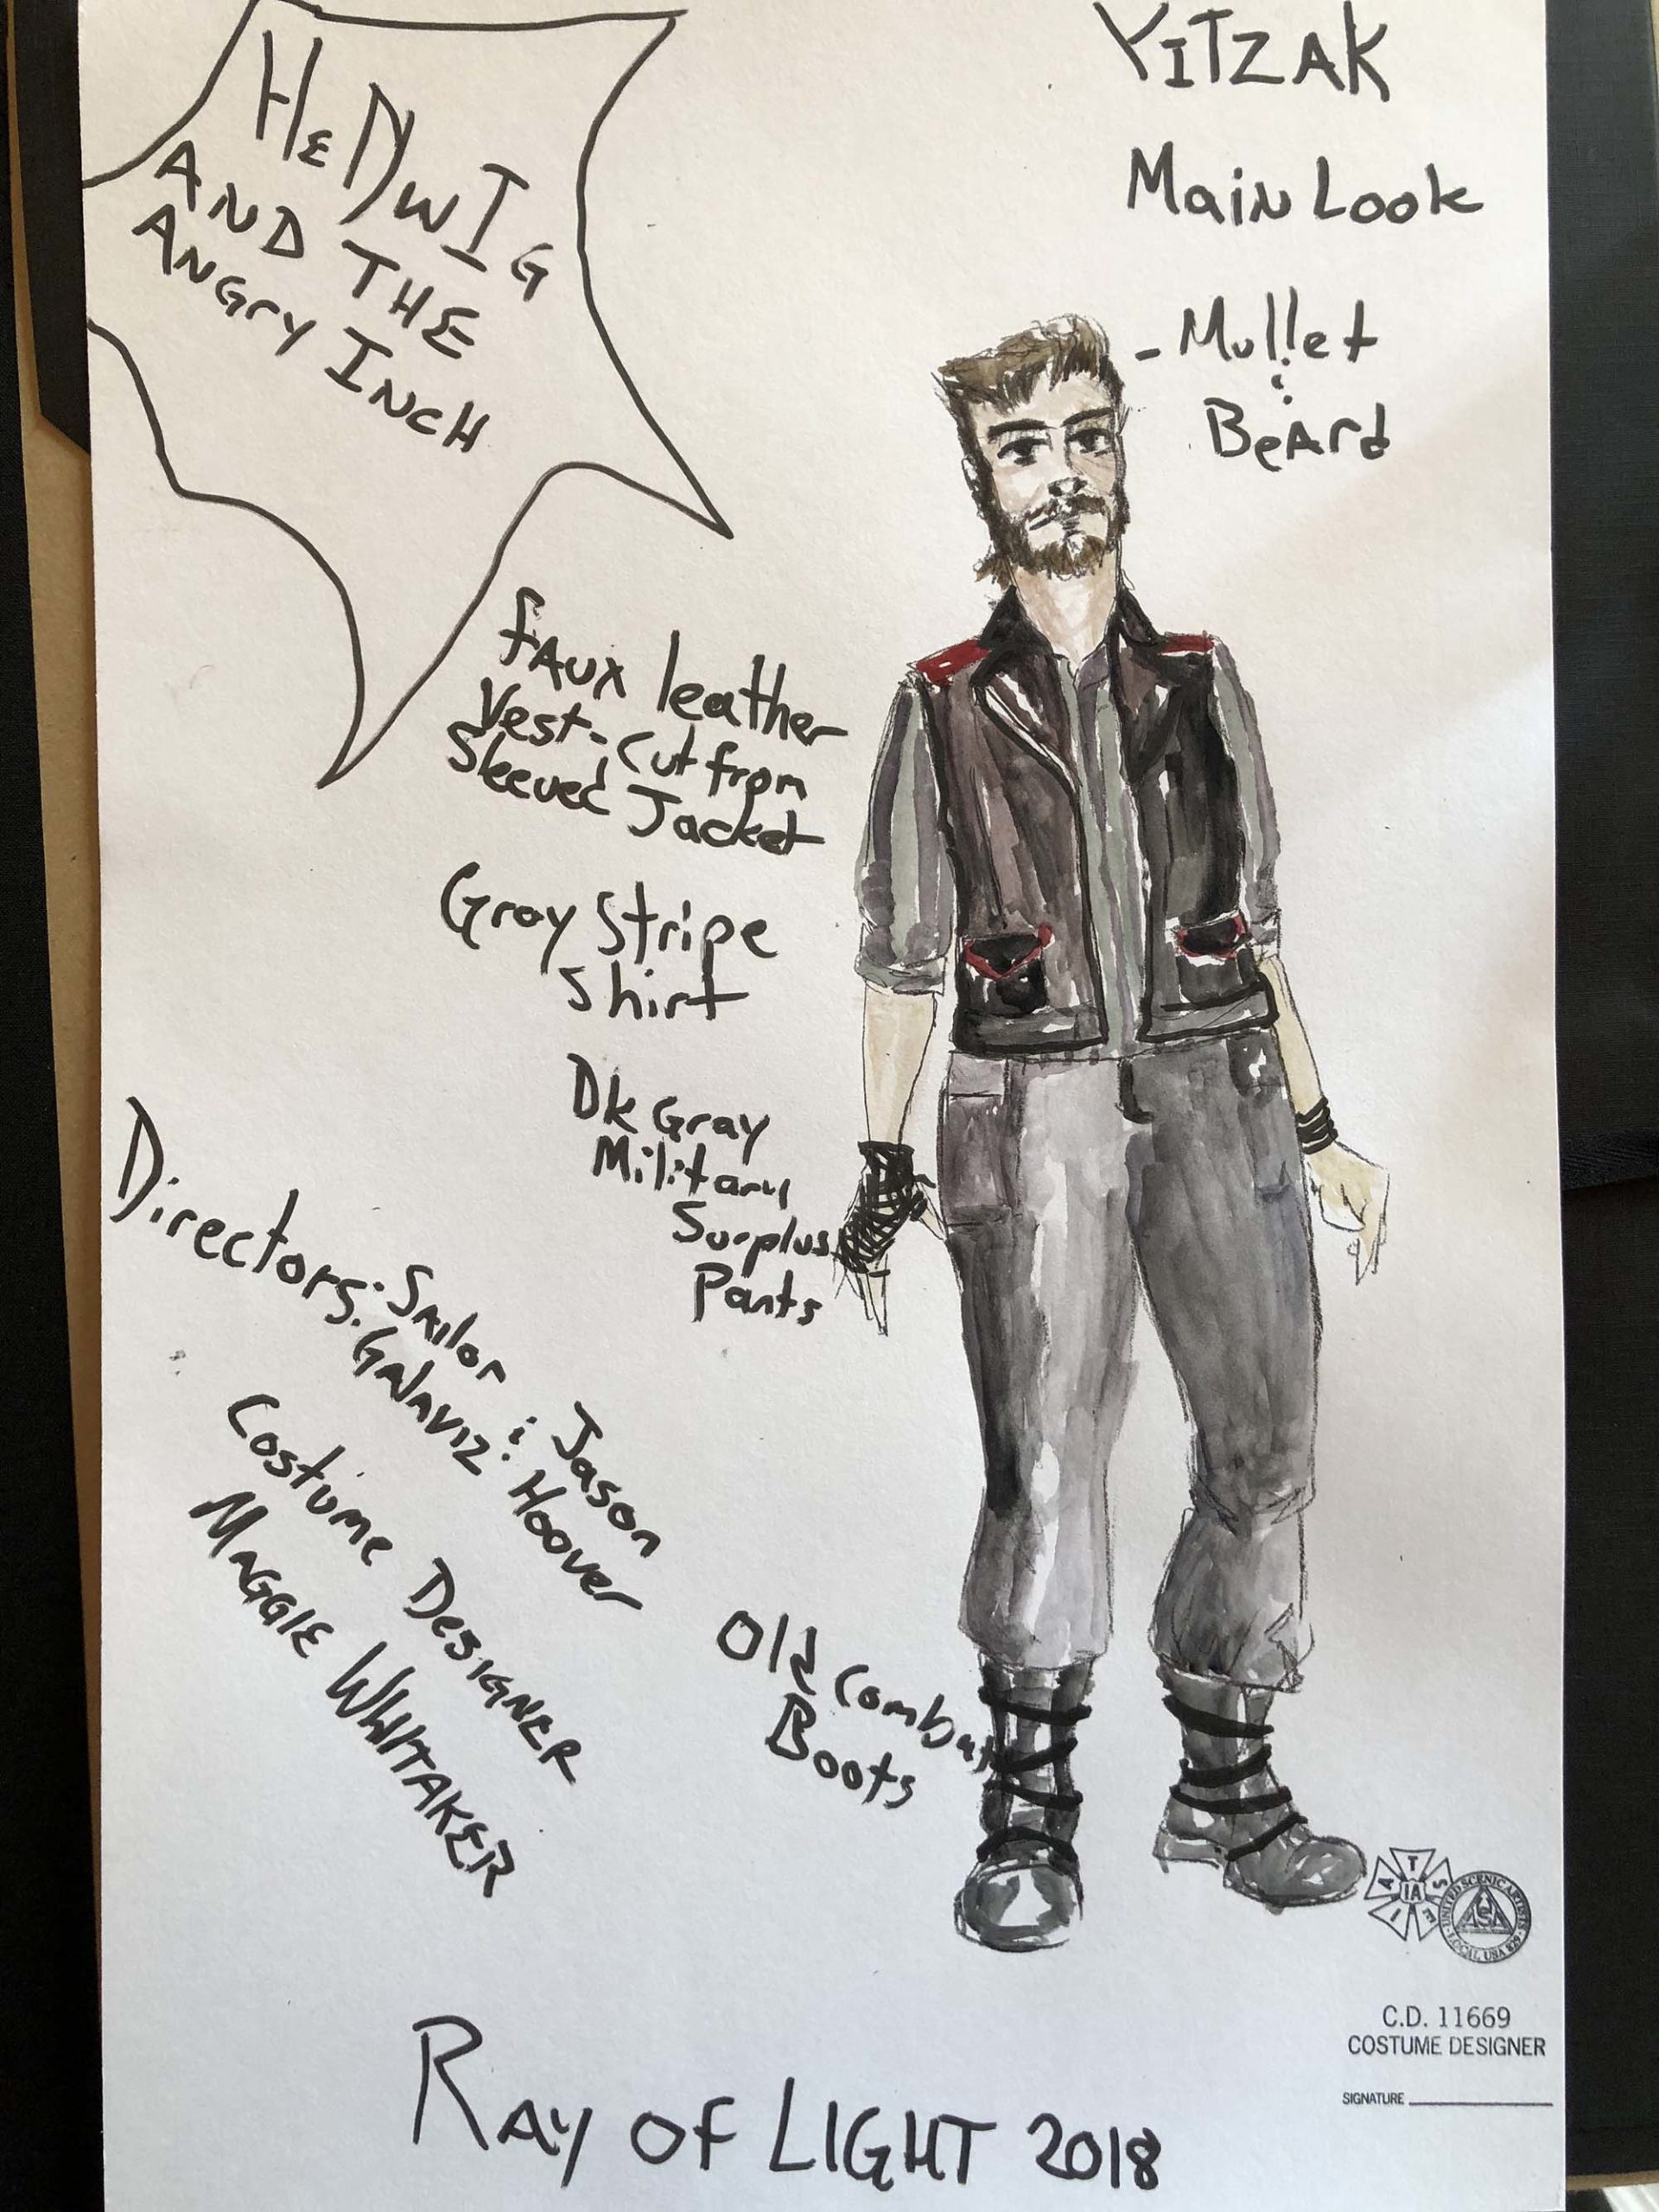 HEDWIG
AND THE
ANGRY INCH
YITZAK
Main Look
- Mullet
&
Beard
FAUX leather
Vest - Cut from
Sleeved Jacket
Gray Stripe
Shirt
Dk Gray
Military
Surplus
Pants
Directors: Sailor & Jason
Galaviz & Hoover
Costume Designer
MAGGIE WHITAKER
Old Combat
Boots
I A T S E
IA
UNITED SCENIC ARTISTS
LOCAL USA 829
USA
C.D. 11669
COSTUME DESIGNER
SIGNATURE
RAY OF LIGHT 2018